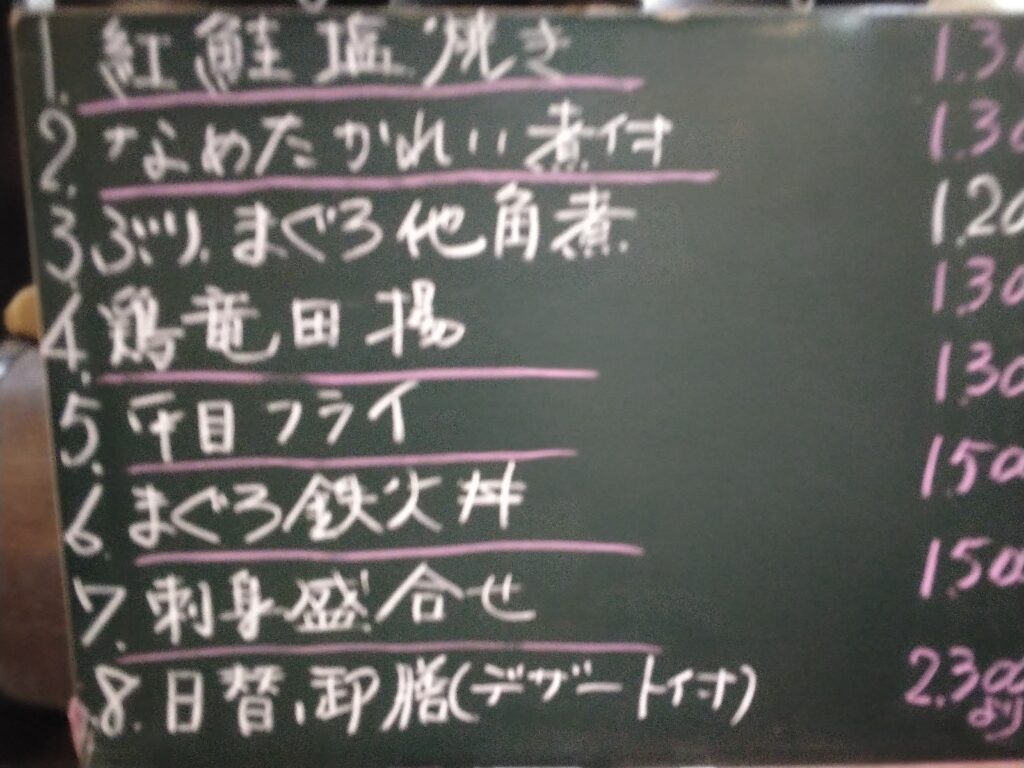 1. 紅鮭塩焼き 1.30
2. なめたかれい煮付 1.30
3. ぶり、まぐろ他角煮 1.20
4. 鶏竜田揚 1.30
5. 平目フライ 1.30
6. まぐろ鉄火丼 1.500
7. 刺身盛合せ 1.500
8. 日替、御膳(デザート付) 2.300より